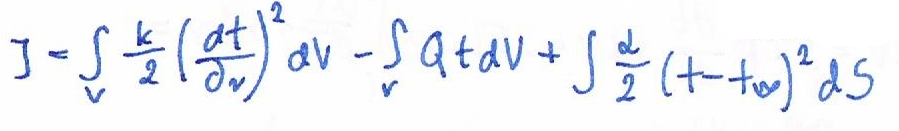 J = ∫_v k/2 (∂t/∂r)² dV - ∫_v Q t dV + ∫ α/2 (t - t∞)² dS